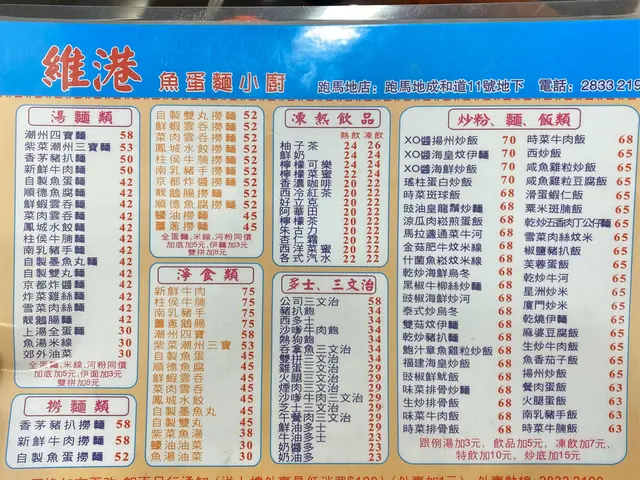 維港 魚蛋麵小廚 跑馬地店：跑馬地成和道11號地下 電話：2833 219
湯麵類
潮州四寶麵 58
紫菜潮州三寶麵 53
香茅豬扒麵 50
新鮮牛肉麵 50
自製魚蛋麵 42
順德魚腐麵 42
鮮蝦雲吞麵 42
菜肉雲吞麵 42
鳳城水餃麵 42
柱侯牛腩麵 42
南乳豬手麵 42
自製墨魚丸麵 42
自製雙丸麵 42
京都炸醬麵 42
炸菜雞絲麵 42
雪菜肉絲麵 42
靚鵝腸麵 42
上湯全蛋麵 30
魚湯米線 30
郊外油菜 30
全蛋麵,米線,河粉同價
加底加5元,伊面加3元
雙拼加8元
撈麵類
香茅豬扒撈麵 58
新鮮牛肉撈麵 58
自製魚蛋撈麵 52
自製雙丸撈麵 52
鮮蝦雲吞撈麵 52
菜肉雲吞撈麵 52
鳳城水餃撈麵 52
柱侯牛腩撈麵 52
南乳豬手撈麵 52
京都炸醬撈麵 52
靚鵝腸撈麵 52
順德魚腐撈麵 52
蠔油撈麵 45
薑蔥撈麵 45
全蛋麵,米線,河粉同價
加底加8元,伊麵加3元
淨食類
新鮮牛肉 75
柱侯牛腩 75
南乳豬手 75
薑蔥鵝腸 75
潮州四寶 58
紫菜潮州三寶 53
自製魚蛋 45
順德魚腐 45
鮮蝦雲吞 45
菜肉雲吞 45
鳳城水餃 45
自製墨魚丸 45
自製雙丸 45
紫菜魚湯 38
蠔油油菜 30
魚湯油菜 30
凍熱飲品
熱飲 凍飲
柚子茶 24 26
鮮奶 24 24
檸檬可樂 22 24
檸檬菜蜜 22 24
香濃咖啡 20 22
西冷紅茶 20 22
好立克 20 22
阿華田 20 22
檸檬茶 20 22
朱古力 20 22
杏仁霜 20 22
西洋菜蜜 20 22
各式汽水 22 22
多士、三文治
公司三文治 58
豬扒飽 34
西多士 34
沙嗲牛肉飽 34
熱狗飽 34
吞拿魚三文治 34
雙拼三文治 34
雞蛋三文治 29
火腿三文治 29
煙肉三文治 29
沙嗲牛三文治 29
芝士三文治 29
午餐肉三文治 29
鮮油多士 23
牛油多士 23
奶醬多士 23
奶油多士 23
炒粉、麵、飯類
XO醬揚州炒飯 70
XO醬海皇炆伊麵 70
XO醬海鮮炒飯 70
瑤柱蛋白炒飯 70
時菜斑球飯 68
豉油皇龍鬚炒麵 68
涼瓜肉崧煎蛋飯 68
馬拉盞通菜牛河 68
金菇肥牛炆米線 68
什菌魚崧炆米線 68
乾炒海鮮烏冬 68
黑椒牛柳絲炒麵 68
豉椒海鮮炒河 68
泰式炒烏冬 68
雙菇炆伊麵 68
乾炒豬扒麵 68
鮑汁章魚雞粒炒飯 68
福建海皇炒飯 68
豉椒鮮魷飯 68
味菜排骨炒麵 68
生炒排骨飯 68
味菜牛肉飯 68
時菜排骨飯 68
時菜牛肉飯 68
西炒飯 65
咸魚雞粒炒飯 65
咸魚雞粒豆腐飯 65
滑蛋蝦仁飯 65
粟米斑腩飯 65
乾炒五香肉丁公仔麵 65
雪菜肉絲炆米 65
椒鹽豬扒飯 65
芙蓉蛋飯 65
乾炒牛河 65
星洲炒米 65
廈門炒米 65
乾燒伊麵 65
麻婆豆腐飯 65
生炒魚飯 65
魚香茄子飯 65
揚州炒飯 65
餐肉蛋飯 63
火腿蛋飯 63
南乳豬手飯 63
時菜牛腩飯 63
跟例湯加3元，飲品加5元，凍飲加7元，
特飲加10元，炒底加15元